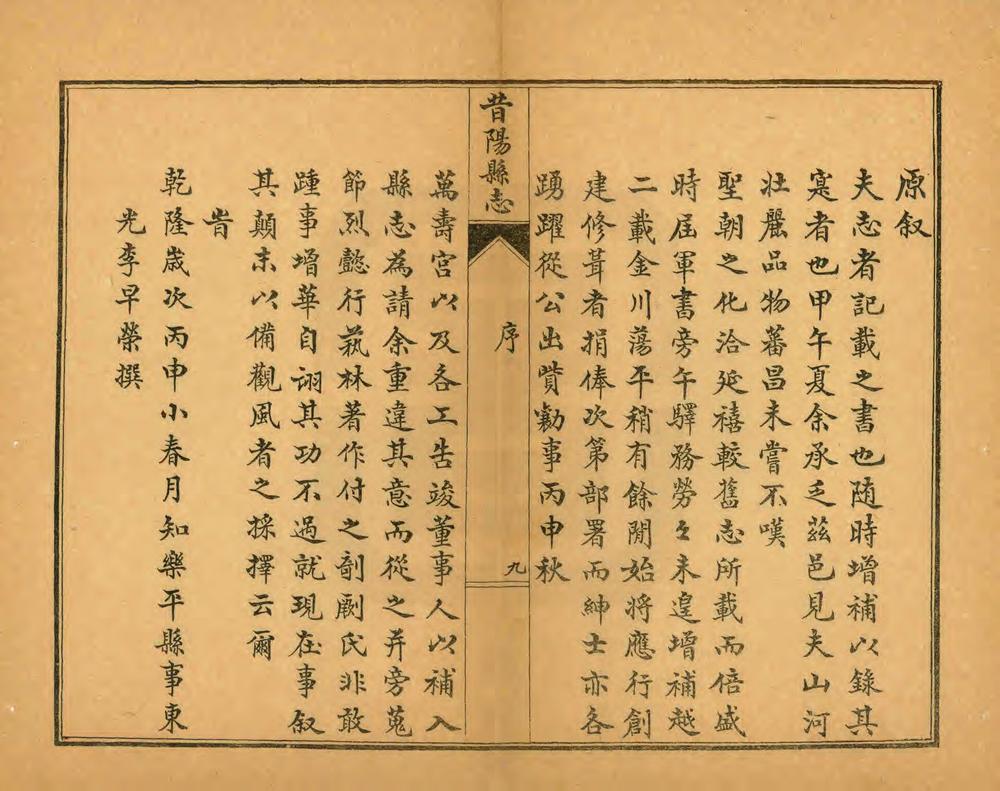 原叙
夫志者記載之書也随時增補以錄其
寔者也甲午夏余承乏茲邑見夫山河
壯麗品物蕃昌未嘗不嘆
聖朝之化洽延禧較舊志所載而倍盛
時届軍書旁午驛務勞々未遑增補越
二載金川蕩平稍有餘閒始将應行創
建修葺者捐俸次第部署而紳士亦各
踴躍從公出貲勷事丙申秋
昔陽縣志
序
九
萬壽宮以及各工告竣董事人以補入
縣志為請余重違其意而從之并旁蒐
節烈懿行蓺林著作付之剞劂氏非敢
踵事增華自詡其功不過就現在事叙
其顛末以備觀風者之採擇云爾
旹
乾隆歲次丙申小春月知樂平縣事東
光李早榮撰